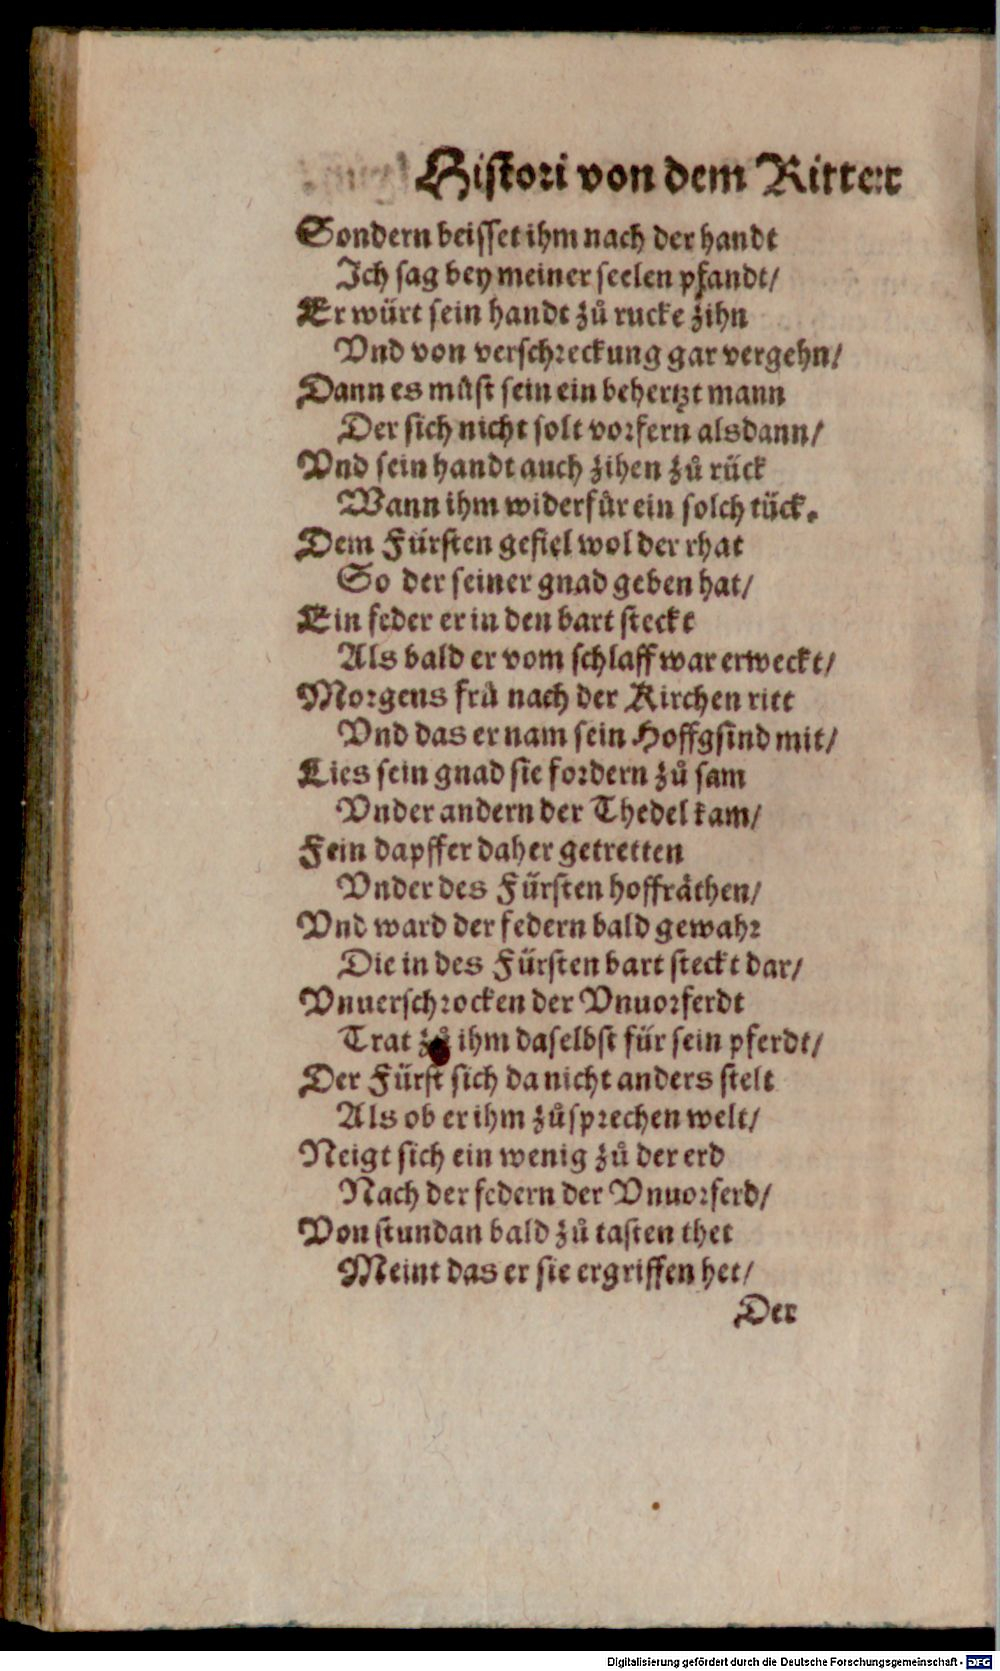 Histori von dem Ritter
Sondern beisset ihm nach der handt
Ich sag bey meiner seelen pfandt/
Er würt sein handt zů rucke zihn
Vnd von verschreckung gar vergehn/
Dann es můst sein ein behertzt mann
Der sich nicht solt vorfern alsdann/
Vnd sein handt auch zihen zů rück
Wann ihm widerfůr ein solch tück.
Dem Fürsten gefiel wol der rhat
So der seiner gnad geben hat/
Ein feder er in den bart steckt
Als bald er vom schlaff war erweckt/
Morgens frü nach der Kirchen ritt
Vnd das er nam sein Hoffgsind mit/
Lies sein gnad sie fordern zů sam
Vnder andern der Thedel kam/
Fein dapffer daher getretten
Vnder des Fürsten hoffräthen/
Vnd ward der federn bald gewahr
Die in des Fürsten bart steckt dar/
Vnuerschrocken der Vnuorferdt
Trat zů ihm daselbst für sein pferdt/
Der Fürst sich da nicht anders stelt
Als ob er ihm zůsprechen welt/
Neigt sich ein wenig zů der erd
Nach der federn der Vnuorferd/
Von stundan bald zů tasten thet
Meint das er sie ergriffen het/
Der
Digitalisierung gefördert durch die Deutsche Forschungsgemeinschaft - DFG